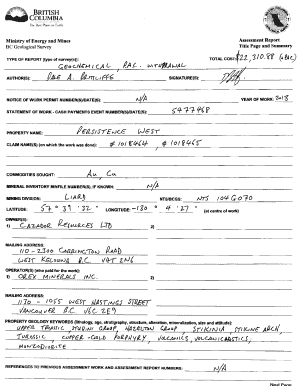 BRITISH
COLUMBIA
The Best Place on Earth
Ministry of Energy and Mines
BC Geological Survey
Assessment Report
Title Page and Summary
TYPE OF REPORT [type of survey(s)]: GEOCHEMICAL, PAC WITHDRAWAL
TOTAL COST: $22,310.88
AUTHOR(S): A. RATCLIFFE SIGNATURE(S):
NOTICE OF WORK PERMIT NUMBER(S)/DATE(S): N/A YEAR OF WORK: 2013
STATEMENT OF WORK - CASH PAYMENTS EVENT NUMBER(S)/DATE(S): 5477468
PROPERTY NAME: PERSISTENCE WEST
CLAIM NAME(S) (on which the work was done): # 1018464, # 1018465
COMMODITIES SOUGHT: Au, Cu
MINERAL INVENTORY MINFILE NUMBER(S), IF KNOWN: N/A
MINING DIVISION: LIARD NTS/BCGS: NTS 104G070
LATITUDE: 57 ° 39 ' 32 " LONGITUDE: -130 ° 4 ' 27 " (at centre of work)
OWNER(S):
1) CAZADOR RESOURCES LTD 2)
MAILING ADDRESS:
110-2300 CARRINGTON ROAD
WEST KELOWNA B.C. V4T 2N6
OPERATOR(S) [who paid for the work]:
1) OREX MINERALS INC. 2)
MAILING ADDRESS:
1130 - 1055 WEST HASTINGS STREET
VANCOUVER B.C. V6C 2E9
PROPERTY GEOLOGY KEYWORDS (lithology, age, stratigraphy, structure, alteration, mineralization, size and attitude):
UPPER TRIASSIC STUHINI GROUP, HAZELTON GROUP, STIKINIA STIKINE ARCH,
JURASSIC COPPER-GOLD PORPHYRY, VOLCANICS, VOLCANICLASTICS,
MONZODIORITE
REFERENCES TO PREVIOUS ASSESSMENT WORK AND ASSESSMENT REPORT NUMBERS: N/A
Next Page